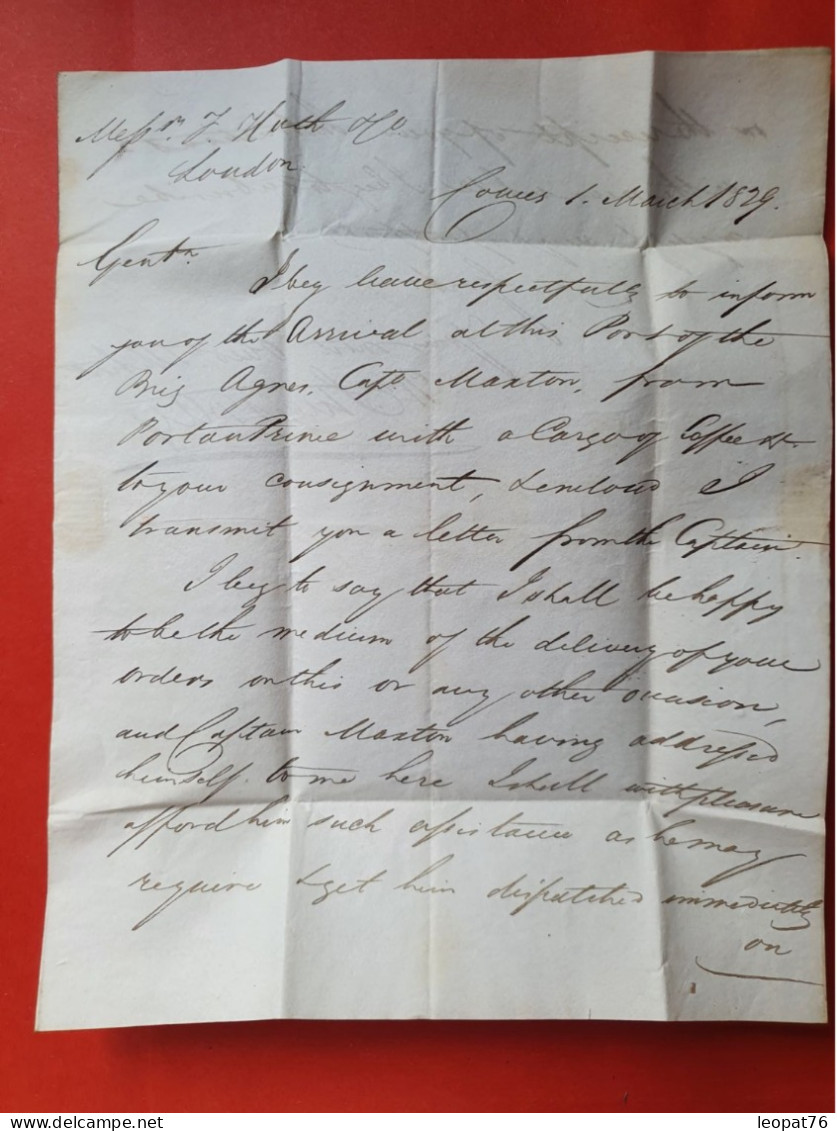 Messrs. F. Huth & Co
London
Cowes 1. March 1829.
Gentn.
I beg leave respectfully to inform
you of the Arrival at this Port of the
Brig Agnes, Capt. Maxton, from
Port au Prince with a Cargo of Coffee &c.
to your consignment, & enclosed I
transmit you a letter from the Captain.
I beg to say that I shall be happy
to be the medium of the delivery of your
orders on this or any other occasion,
and Captain Maxton having addressed
himself to me here I shall with pleasure
afford him such assistance as he may
require & get him dispatched immediately
on
delcampe.net
leopat76